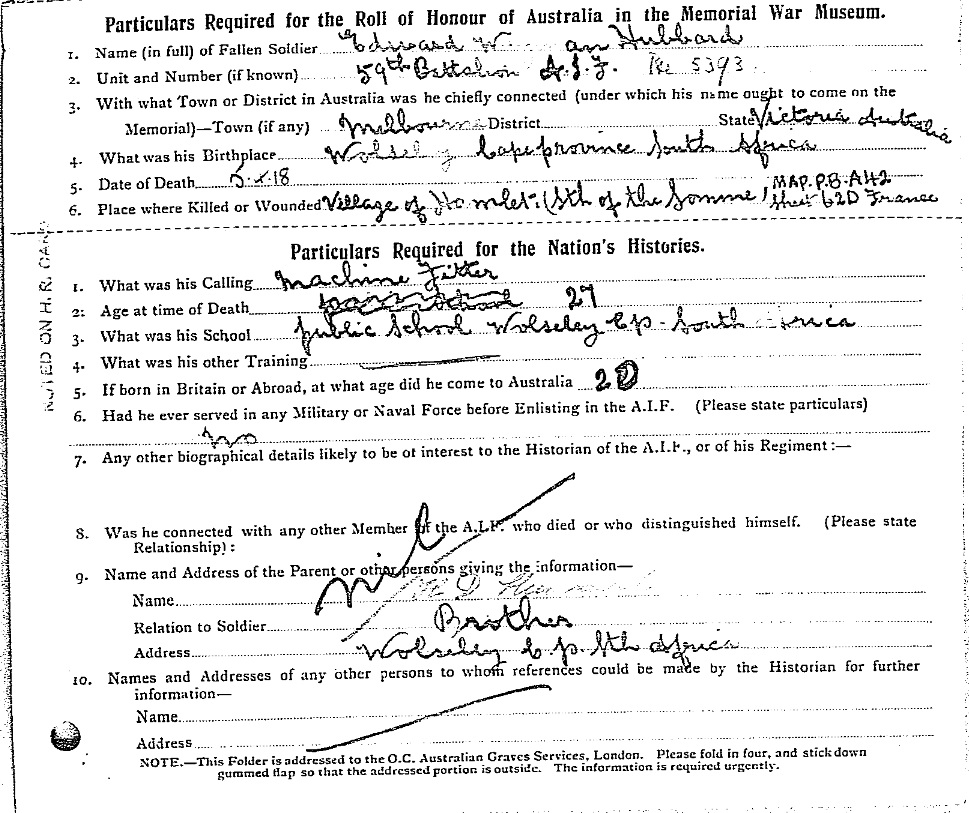 Particulars Required for the Roll of Honour of Australia in the Memorial War Museum.
1. Name (in full) of Fallen Soldier Edward Hubbard
2. Unit and Number (if known) 59th Battalion A.I.F. 5393
3. With what Town or District in Australia was he chiefly connected (under which his name ought to come on the
Memorial)—Town (if any) Melbourne District State Victoria Australia
4. What was his Birthplace Wolseley Cape province South Africa
5. Date of Death 18
6. Place where Killed or Wounded Village of Hamlet. (Sth of the Somme) MAP. P.B. A42
Sheet 62D France
Particulars Required for the Nation's Histories.
1. What was his Calling Machine Fitter
2. Age at time of Death 27
3. What was his School public School Wolseley Cp. South Africa
4. What was his other Training
5. If born in Britain or Abroad, at what age did he come to Australia 20
6. Had he ever served in any Military or Naval Force before Enlisting in the A.I.F. (Please state particulars)
no
7. Any other biographical details likely to be of interest to the Historian of the A.I.F., or of his Regiment:—
8. Was he connected with any other Member of the A.I.F. who died or who distinguished himself. (Please state
Relationship):
nil
9. Name and Address of the Parent or other persons giving the information—
Name
Relation to Soldier Brother
Address Wolseley C.p. Sth Africa
10. Names and Addresses of any other persons to whom references could be made by the Historian for further
information—
Name
Address
NOTE.—This Folder is addressed to the O.C. Australian Graves Services, London. Please fold in four, and stick down
gummed flap so that the addressed portion is outside. The information is required urgently.
NOTED ON H. R. CARD